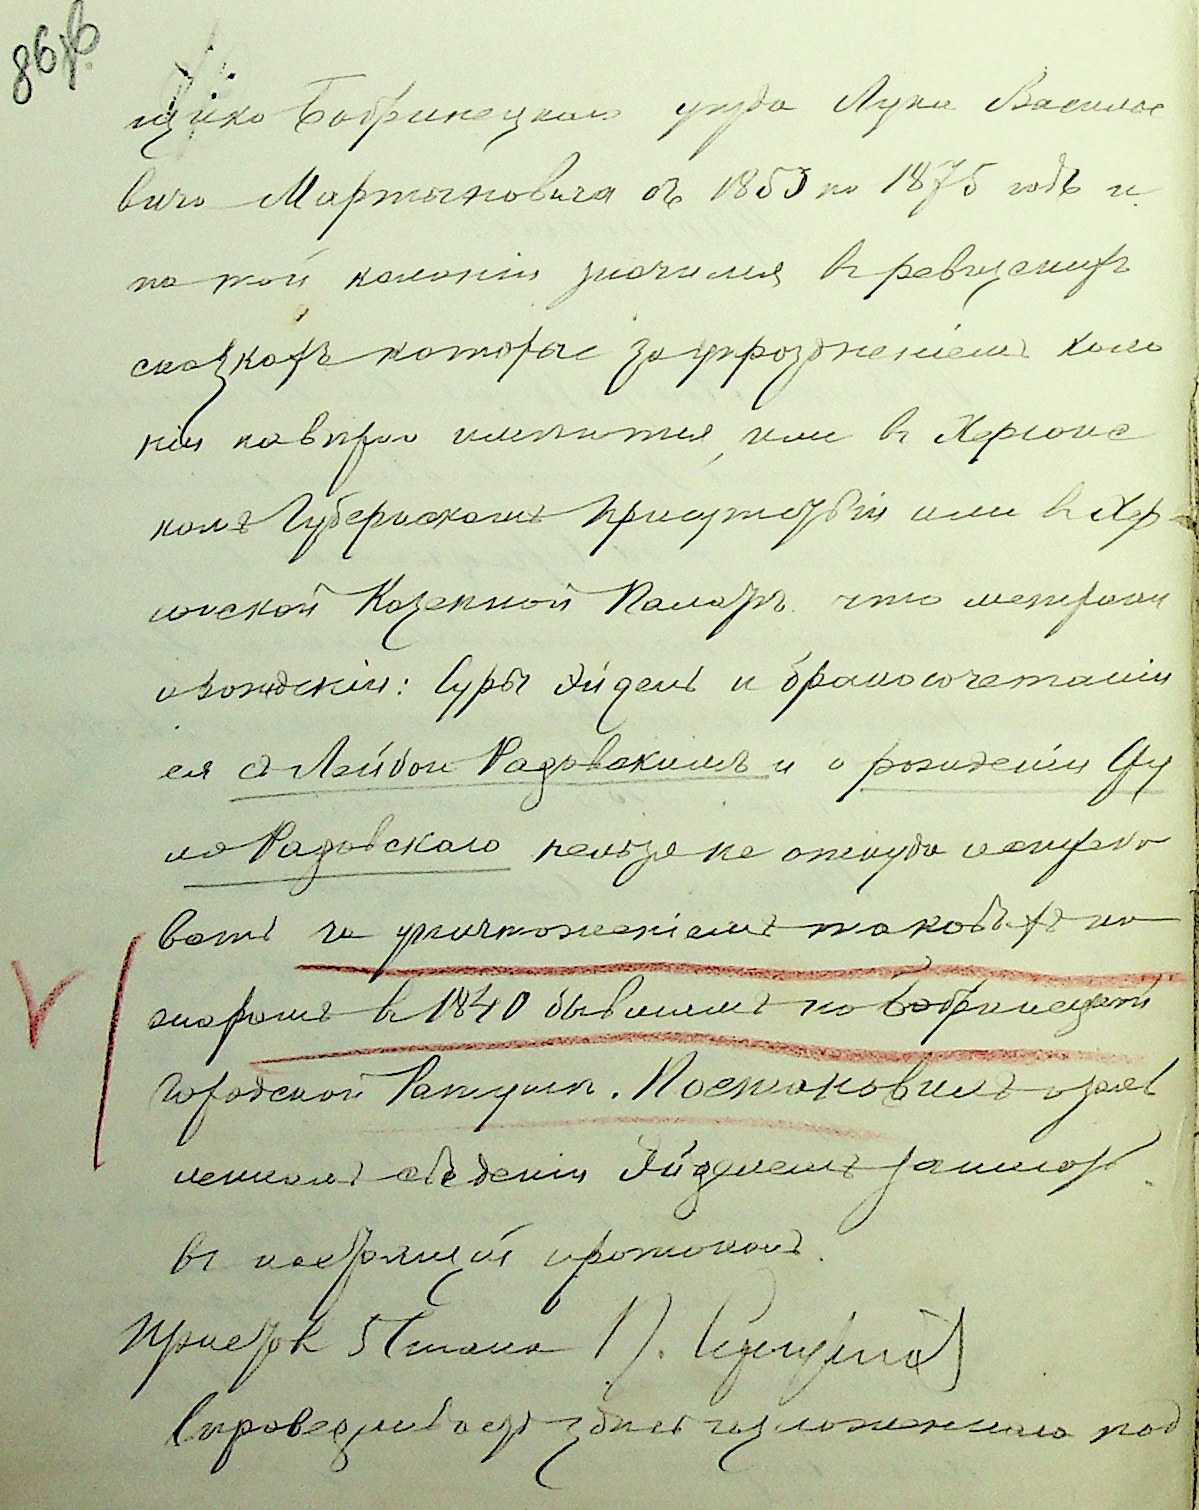 86 об.
щика Бобринецкаго уезда Луки Василье
вича Мартыновича съ 1853 по 1875 годъ и
по той колоніи значился в ревизскихъ
сказкахъ которые за упраздненіемъ коло
ніи имеются, или в Херсонс
комъ Губернскомъ Присутствіи или в Хер-
сонской Казенной Палатѣ что метрики
о рожденіи: Суры Эйдель и бракосочетаніи
ея съ Лейбою Радовскимъ и о рожденіи Сру
ля Радовскаго нельзя не откуда истребо
вать за уничтоженіемъ таковыхъ по
жаромъ в 1840 бывшимъ по Бобринецкой
городской Ратуши. Постановилъ о заяв
ленномъ сведеніи Эйделемъ записать
въ настоящій протоколъ.
Приставъ 5 Стана П.
Справедливость здѣсь изложеннаго под